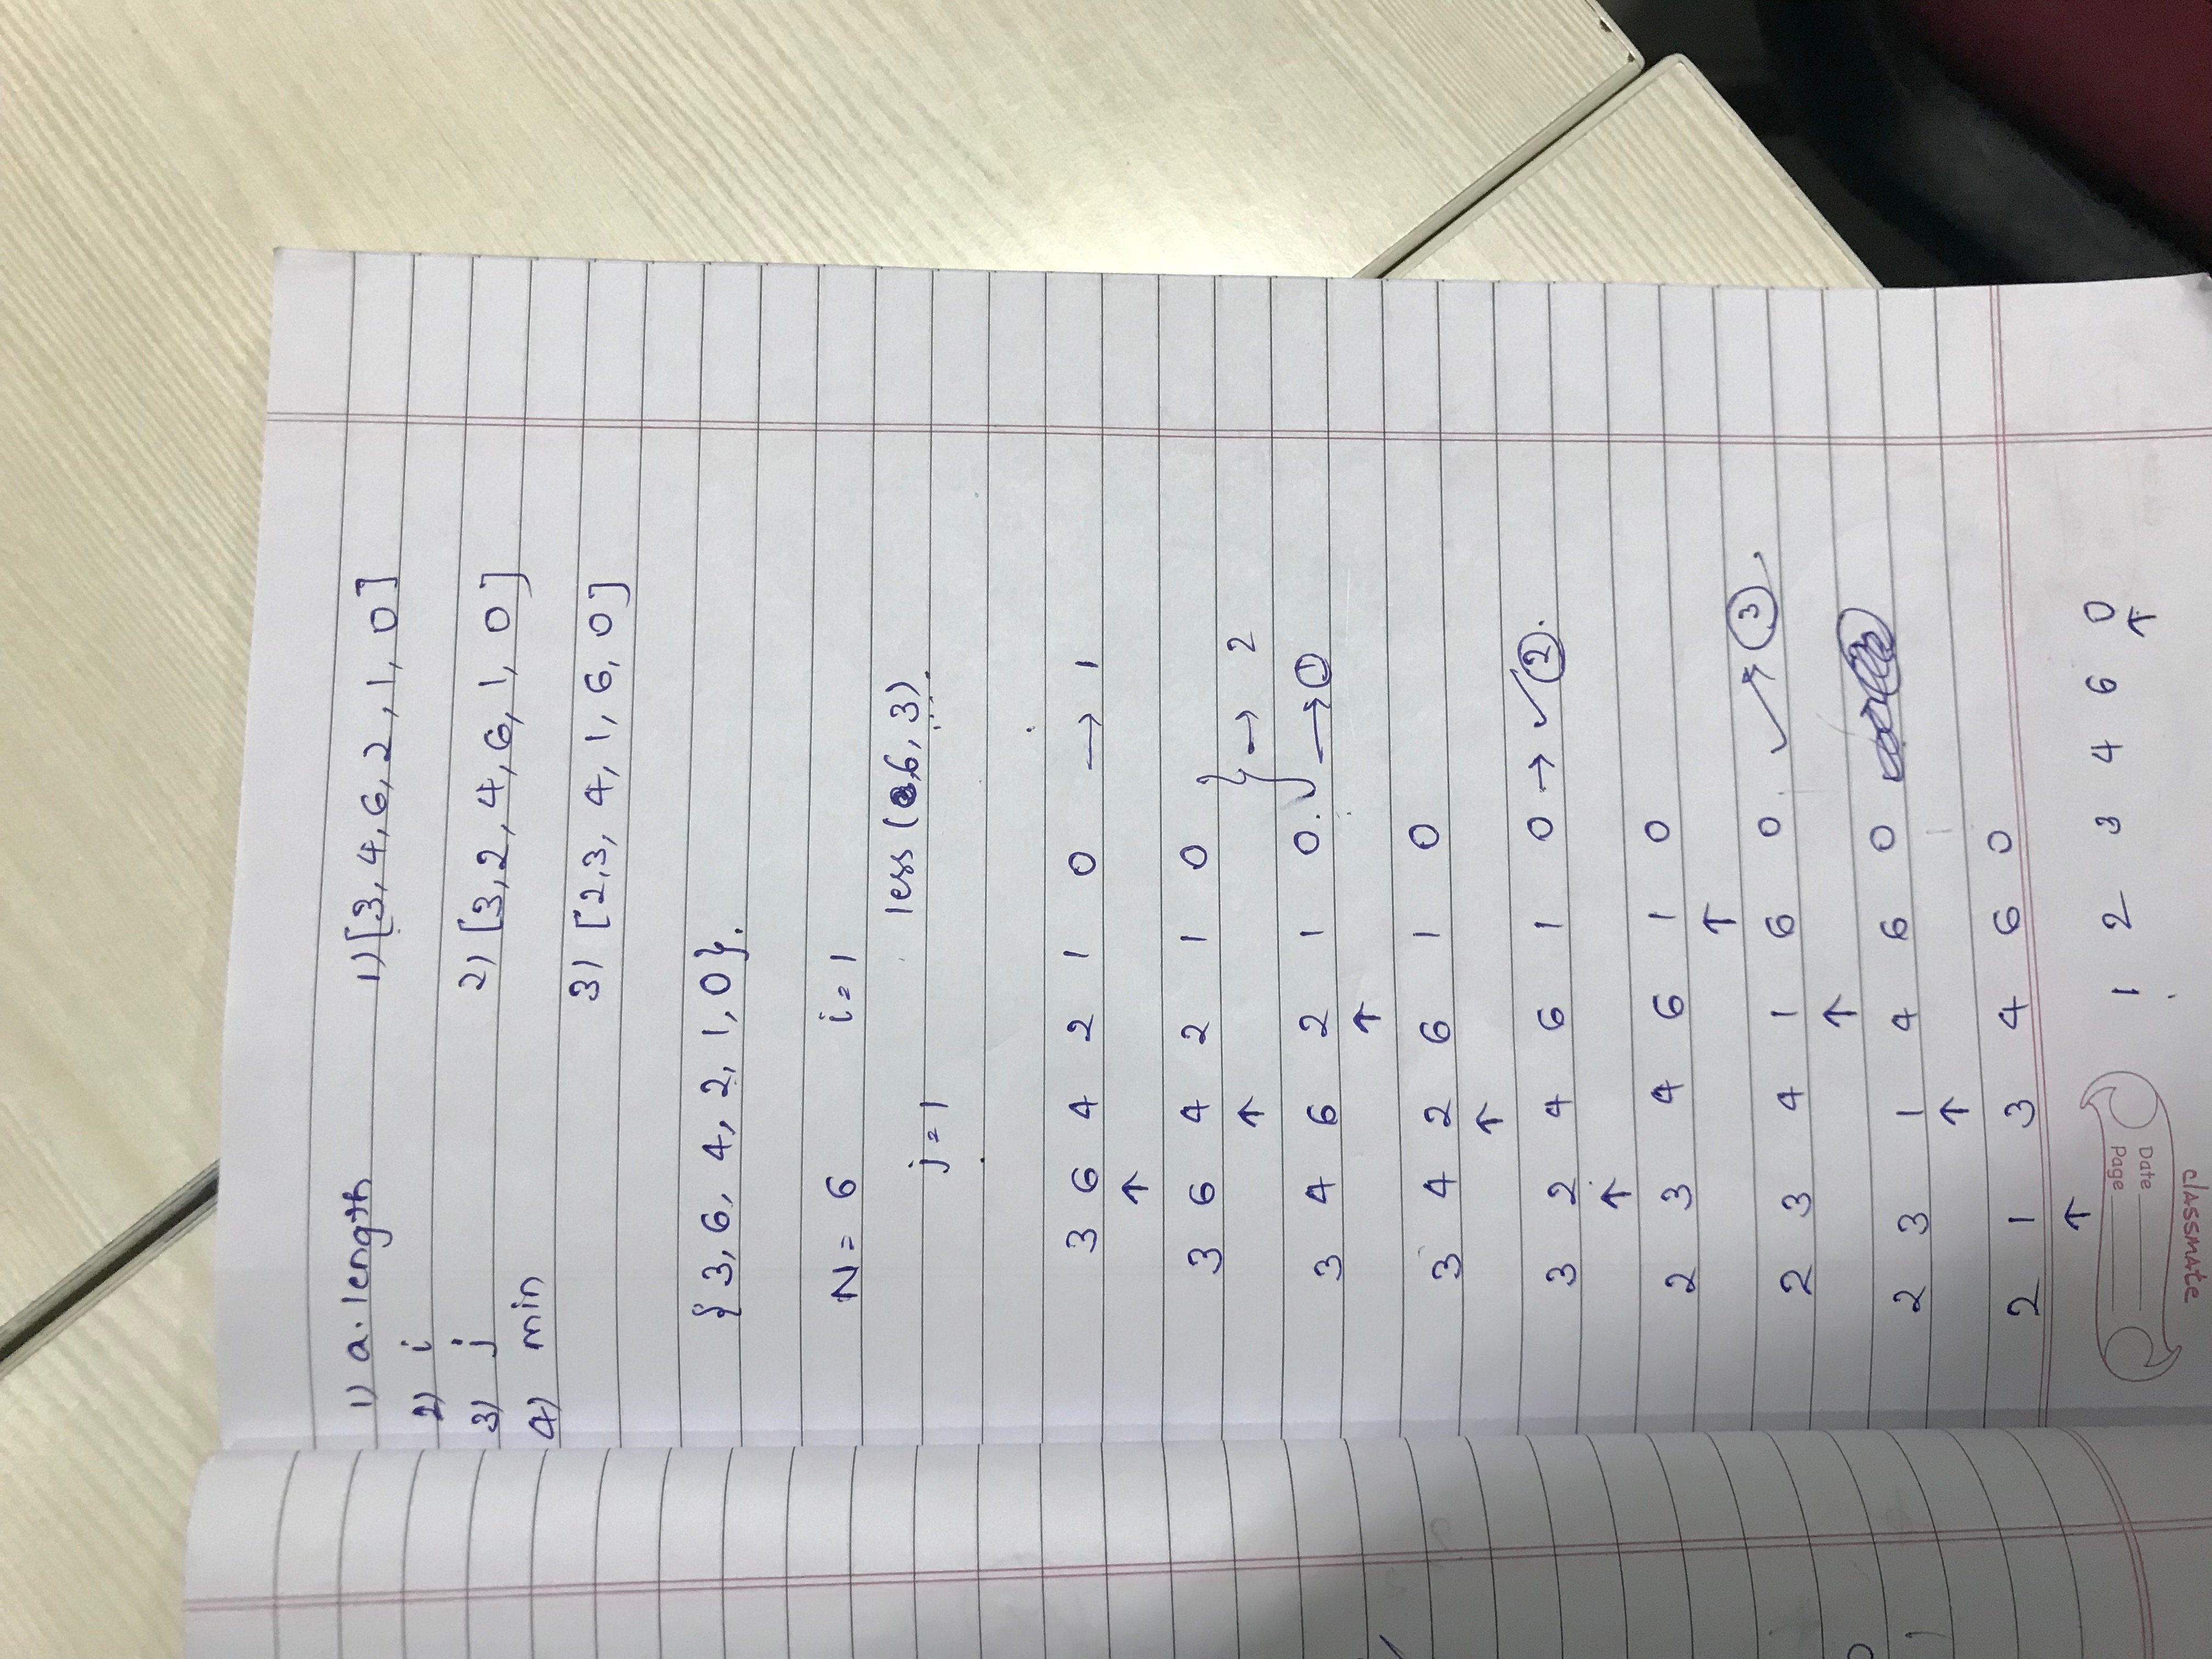 1) a. length 1) [3, 4, 6, 2, 1, 0]
2) i
3) j 2) [3, 2, 4, 6, 1, 0]
4) min
3) [2,3, 4, 1, 6, 0]
{3, 6, 4, 2, 1, 0}.
N = 6 i = 1
less ( 6, 3)
j = 1
3 6 4 2 1 0 → 1
↑
3 6 4 2 1 0 } → 2
↑
3 4 6 2 1 0. → ①
↑
3 4 2 6 1 0
↑
3 2 4 6 1 0 → ✓②.
↑
2 3 4 6 1 0
↑
2 3 4 1 6 0 ③
↑
2 3 1 4 6 0
↑
2 1 3 4 6 0
↑
1 2 3 4 6 0
↑
Page
Date
classmate